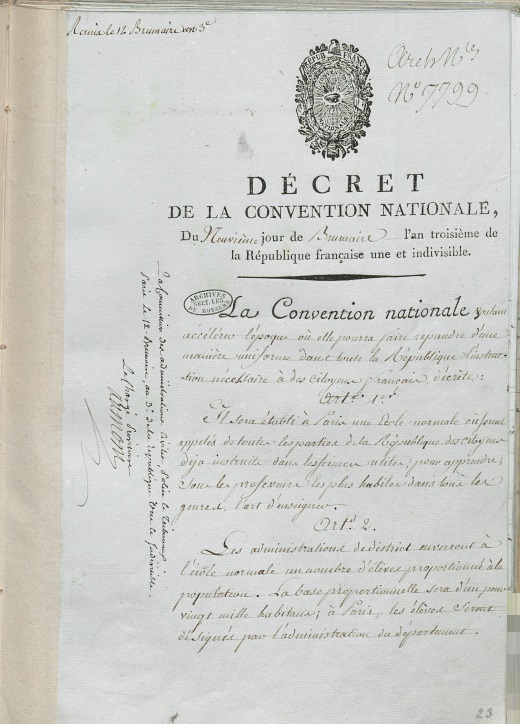 Remis le 12 Brumaire an 3e
Arch Nles
No 7799
REPUB FRANC
DÉCRET
DE LA CONVENTION NATIONALE,
Du Neuvième jour de Brumaire l'an troisième de
la République française une et indivisible.
ARCHIVES
SECT. LEG.
DU ROYAUME
La Convention nationale voulant
accélérer l'époque où elle pourra faire répandre d'une
manière uniforme dans toute la République l'instruc-
tion nécessaire à des citoyens français, décrète:
Art. 1er
Il sera établi à Paris une école normale où seront
appelés de toutes les parties de la République des citoyens
déja instruits dans les sciences utiles, pour apprendre,
sous les professeurs les plus habiles dans tous les
genres, l'art d'enseigner.
Art. 2.
Les administrations de district enverront à
l'école normale un nombre d'élèves proportionné à la
population. La base proportionnelle sera d'un pour
vingt mille habitans; à Paris, les élèves seront
désignés par l'administration du département.
La Commission des administrations civiles, Police et Tribunaux
Paris le 12 Brumaire, an 3e de la république une et Indivisible.
Le Chargé Provisoire
23